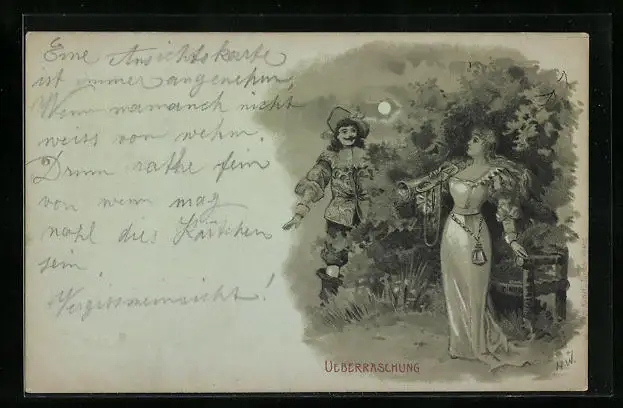 Eine Ansichtskarte
ist immer angenehm,
Wenn mamanch nicht
weiss von wehm.
Drum rathe fein
von wem mag
wohl dies Kärtchen
sein.
Vergissmeinnicht!
UEBERRASCHUNG
H.W.